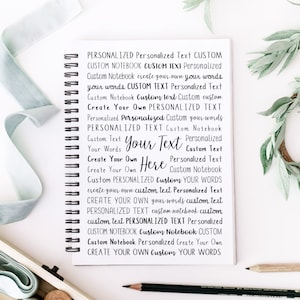 PERSONALIZED Personalized Text CUSTOM
CUSTOM NOTEBOOK CUSTOM TEXT Personalized
Custom Notebook create your own your words
your words CUSTOM TEXT Personalized Text
Custom Notebook Custom text Custom custom
Create Your Own PERSONALIZED TEXT
Personalized Personalized Custom your words
PERSONALIZED TEXT CUSTOM
Custom Text Your Text Personalized
Your Words Custom Text
Create Your Own Here Personalized
Create Your Own Custom Text
Custom PERSONALIZED Custom YOUR WORDS
create your own custom text Personalized Text
CREATE YOUR OWN your words custom
PERSONALIZED TEXT custom notebook custom
custom text PERSONALIZED TEXT CUSTOM
CUSTOM NOTEBOOK Custom Notebook CUSTOM
Custom Notebook Personalized Create Your Own
CREATE YOUR OWN Custom YOUR WORDS